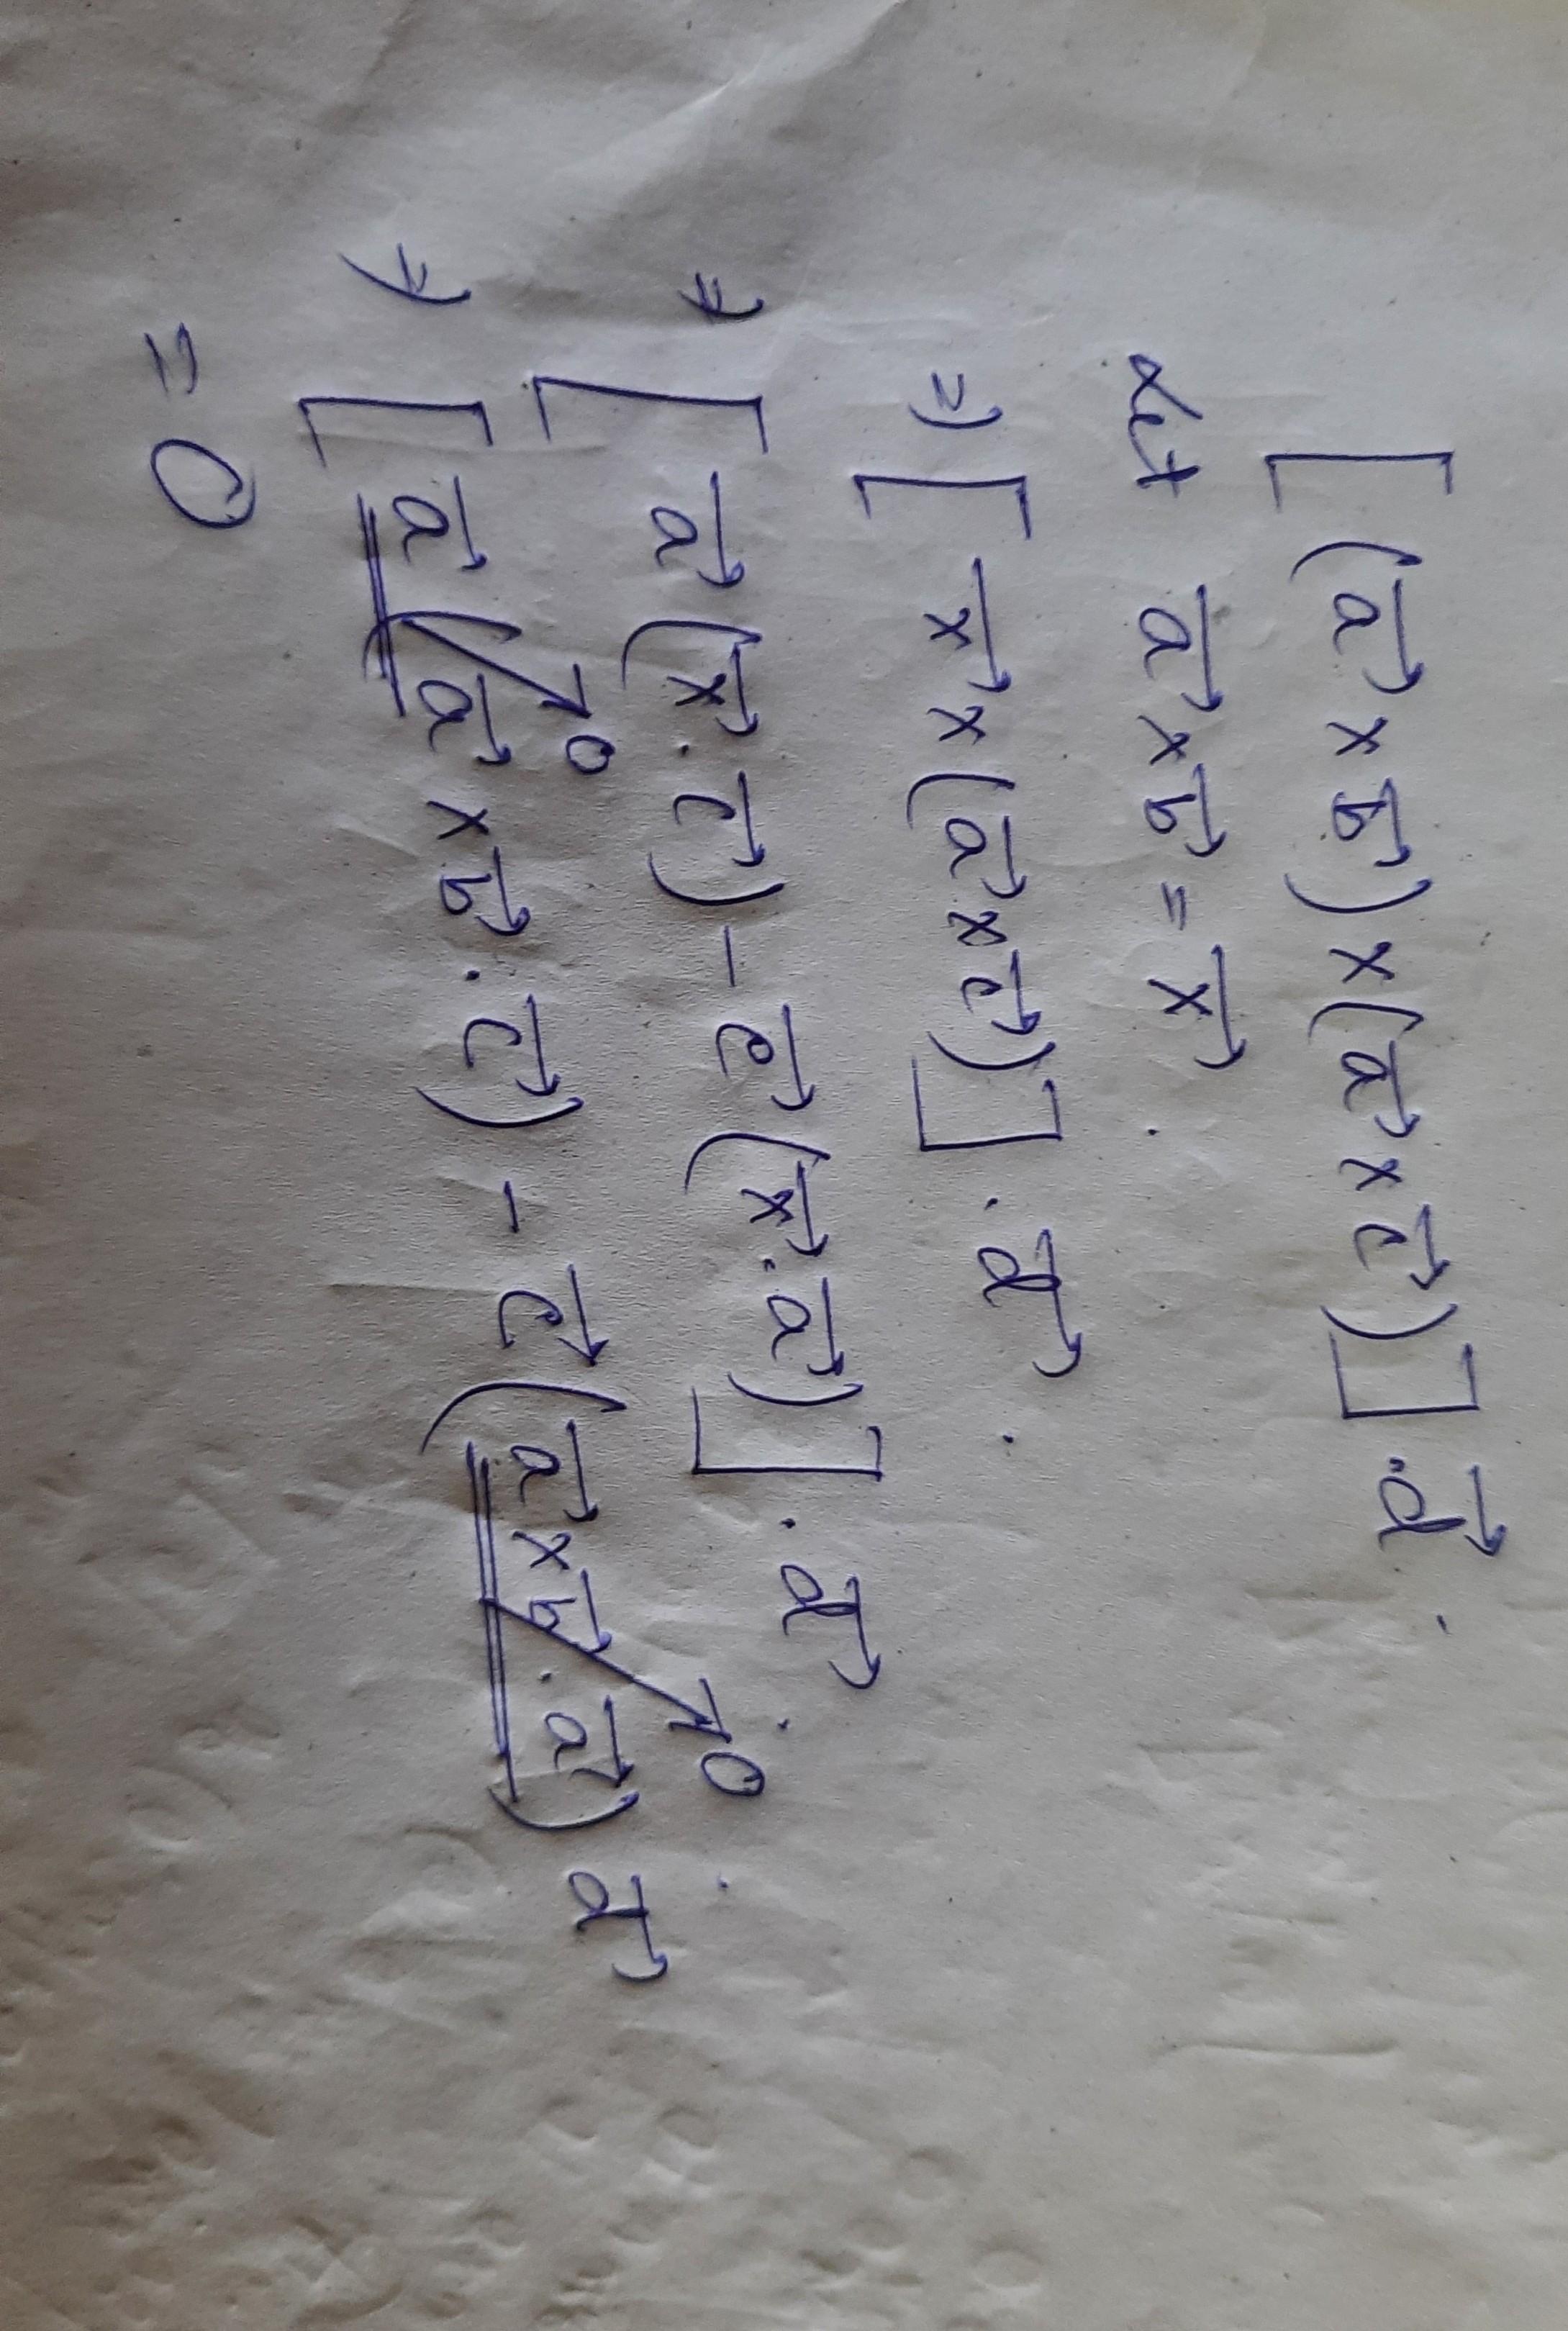 [(a⃗ × b⃗) × (a⃗ × c⃗)] . d⃗ .
Let a⃗ × b⃗ = x⃗ .
⇒ [x⃗ × (a⃗ × c⃗)] . d⃗ .
⇒ [a⃗ (x⃗ . c⃗) - c⃗ (x⃗ . a⃗)] . d⃗ .
⇒ [a⃗ (a⃗ × b⃗ . c⃗) - c⃗ (a⃗ × b⃗ . a⃗) . d⃗
0 0
= 0